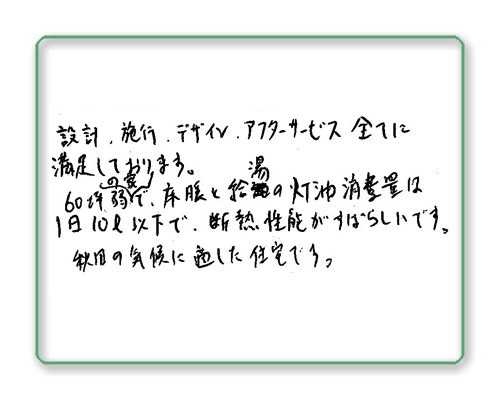 設計、施行、デザイン、アフターサービス 全てに
満足しております。
60坪弱の家で、床暖と給湯の灯油消費量は
1日10ℓ以下で、断熱性能がすばらしいです。
秋田の気候に適した住宅です。